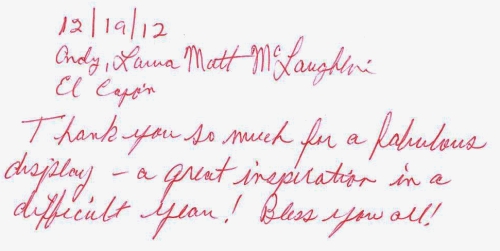 12/19/12
Andy, Laura Matt McLaughlin
El Cajon
Thank you so much for a fabulous
display – a great inspiration in a
difficult year! Bless you all!